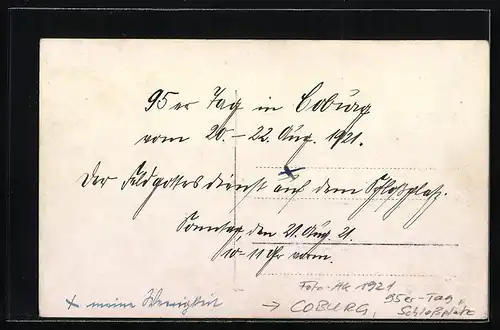 95er Tag in Coburg
vom 20.-22. Aug. 1921.
Der Feldgottesdienst auf dem Schloßplatz.
Sonntag, den 21. Aug. 21.
10-11 Uhr vorm.
x meine Wenigkeit
Foto-AK 1921
→ COBURG, 95er-Tag,
Schloßplatz